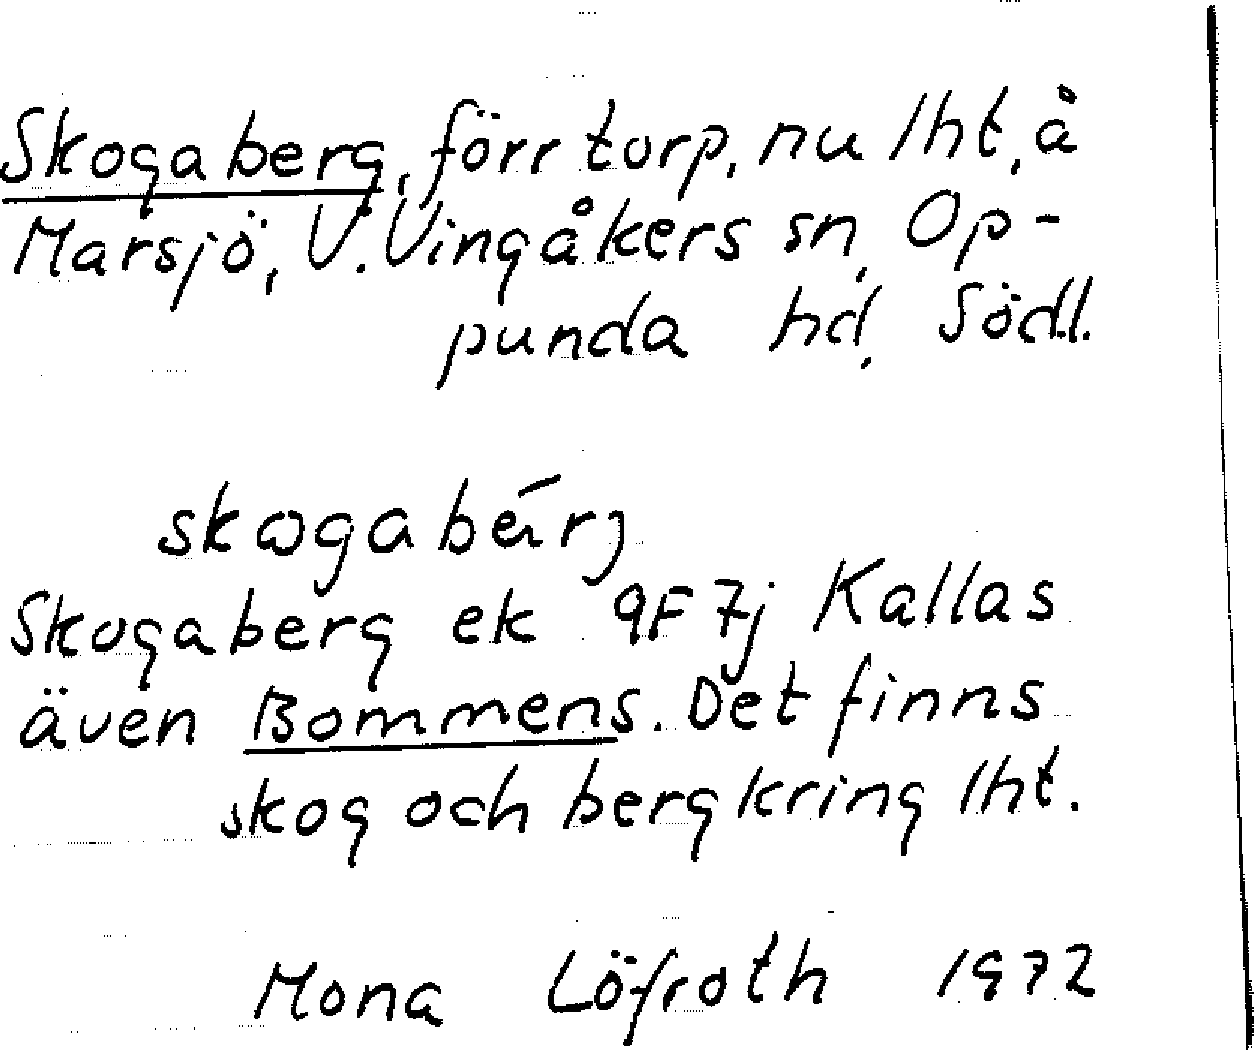 Skogaberg, förr torp, nu lht, å
Marsjö, V. Vingåkers sn, Op-
punda hd, Södl.
skogabérj
Skogaberg ek 9F 7j Kallas
även Bommens. Det finns
skog och berg kring lht.
Mona Löfroth 1972